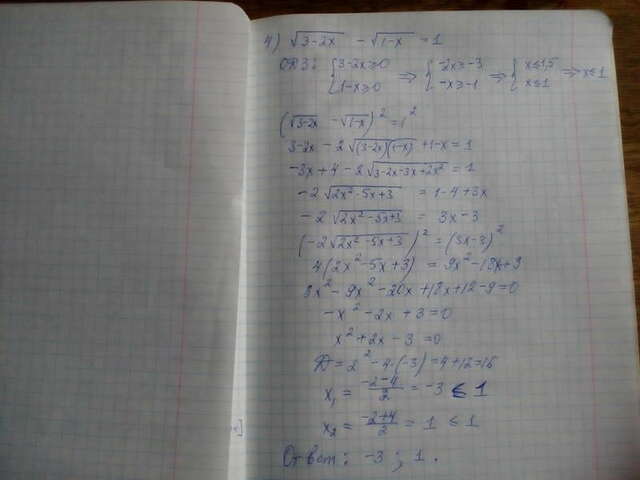 4) √(3-2x) - √(1-x) = 1
ОДЗ: { 3-2x≥0 ; 1-x≥0 ⇒ { -2x≥-3 ; -x≥-1 ⇒ { x≤1,5 ; x≤1 ⇒ x≤1
(√(3-2x) - √(1-x))² = 1²
3-2x - 2√((3-2x)(1-x)) + 1-x = 1
-3x + 4 - 2√(3-2x-3x+2x²) = 1
-2√(2x²-5x+3) = 1-4+3x
-2√(2x²-5x+3) = 3x-3
(-2√(2x²-5x+3))² = (3x-3)²
4(2x²-5x+3) = 9x²-18x+9
8x²-9x²-20x+18x+12-9=0
-x²-2x+3=0
x²+2x-3=0
D=2²-4·(-3)=4+12=16
x₁ = (-2-4)/2 = -3 ≤ 1
x₂ = (-2+4)/2 = 1 ≤ 1
Ответ: -3 ; 1.